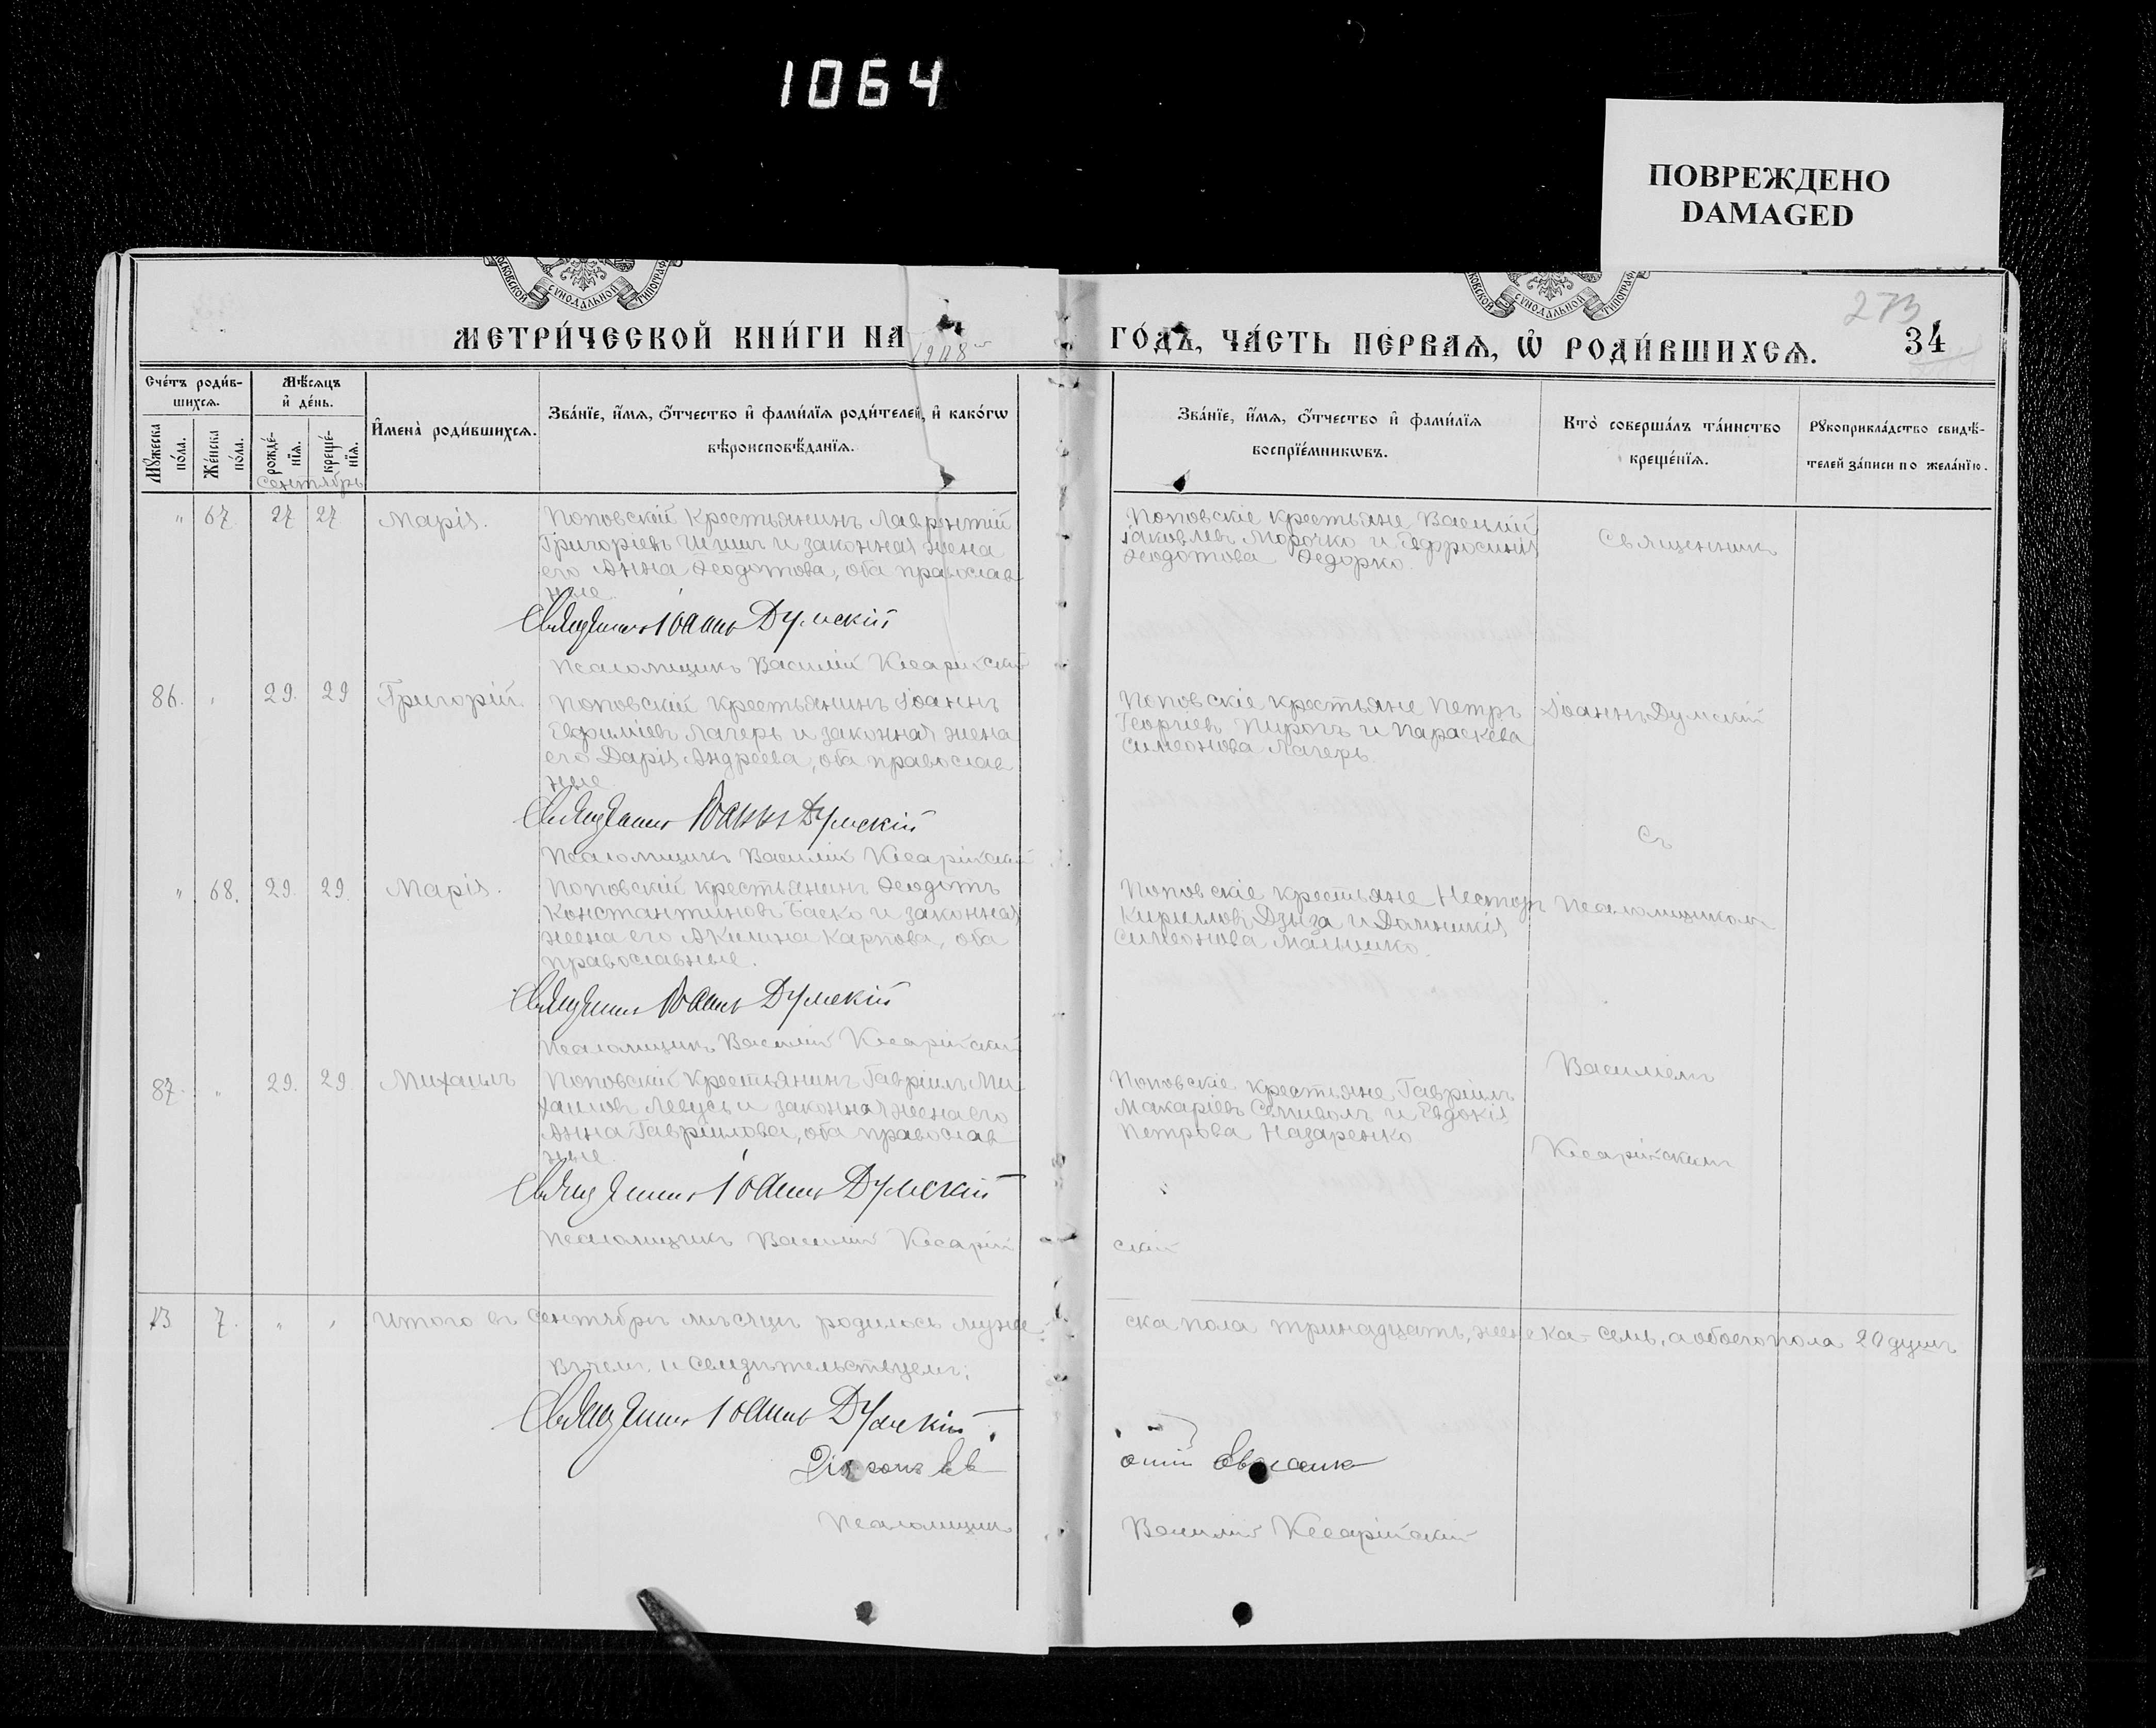 1064
ПОВРЕЖДЕНО
DAMAGED
МОСКОВСКОЙ СѴНОДАЛЬНОЙ ТИПОГРАФ
МЕТРИ́ЧЕСКОЙ КНИ́ГИ НА 1908
ГО́ДЪ, ЧА́СТЬ ПЕ́РВАѦ, Ѡ҆ РОДИ́ВШИХСѦ.
273
34
Сче́тъ роди́в-
шихсѧ.
Мѣ́сѧцъ
и҆ де́нь.
И҆мена̀ роди́вшихсѧ.
Зва́нїе, и҆́мѧ, ѻ҆́тчество и҆ фами́лїѧ роди́телей, и҆ како́гѡ
вѣроисповѣ́данїѧ.
Мꙋ́жеска
по́ла.
Же́нска
по́ла.
рожде́-
нїѧ.
креще́-
нїѧ.
Сентябрь
Зва́нїе, и҆́мѧ, ѻ҆́тчество и҆ фами́лїѧ
воспрїе́мникѡвъ.
Кто̀ соверша́лъ та́инство
креще́нїѧ.
Рꙋкоприкла́дство свидѣ́-
телей за́писи по жела́нїю.
" 67 27 27 Марія.
Поповскій крестьянинъ Лаврентій
Григоріевъ и законная жена
его Анна Ѳеодотова, оба православ
ные.
Священникъ Іоаннъ Думскій
Псаломщикъ Василій Кесарійскій
Поповскіе крестьяне Василій
Іаковлевъ Морочко и Евфросинія
Ѳеодотова Ѳедорко.
Священникъ
86. " 29. 29 Григорій.
Поповскій крестьянинъ Іоаннъ
Евфиміевъ Лагерь и законная жена
его Дарія Андреева, оба православ
ные
Священникъ Іоаннъ Думскій
Псаломщикъ Василій Кесарійскій
Поповскіе крестьяне Петръ
Георгіевъ Пирогъ и Параскева
Симеонова Лагерь.
Іоаннъ Думскій
съ
" 68. 29. 29. Марія.
Поповскій крестьянинъ Ѳеодотъ
Константиновъ Баско и законная
жена его Акилина Карпова, оба
православные.
Священникъ Іоаннъ Думскій
Псаломщикъ Василій Кесарійскій
Поповскіе крестьяне Несторъ
Кирилловъ Дзыза и Домникія
Симеонова
псаломщикомъ
87. " 29. 29. Михаилъ
Поповскій крестьянинъ Гавріилъ Ми
хаиловъ Левусь и законная жена его
Анна Гавріилова, оба православ
ные.
Священникъ Іоаннъ Думскій
Псаломщикъ Василій Кесарій
скій
Поповскіе крестьяне Гавріилъ
Макаріевъ и Евдокія
Петрова Назаренко
Василіемъ
Кесарійскимъ
13. 7. " " Итого въ Сентябрѣ мѣсяцѣ родилось муже
ска пола тринадцать, женска - семь, а обоего пола 20 душъ
В чемъ и свидѣтельствуемъ:
Священникъ Іоаннъ Думскій.
Діаконъ
Псаломщикъ
Василій Кесарійскій